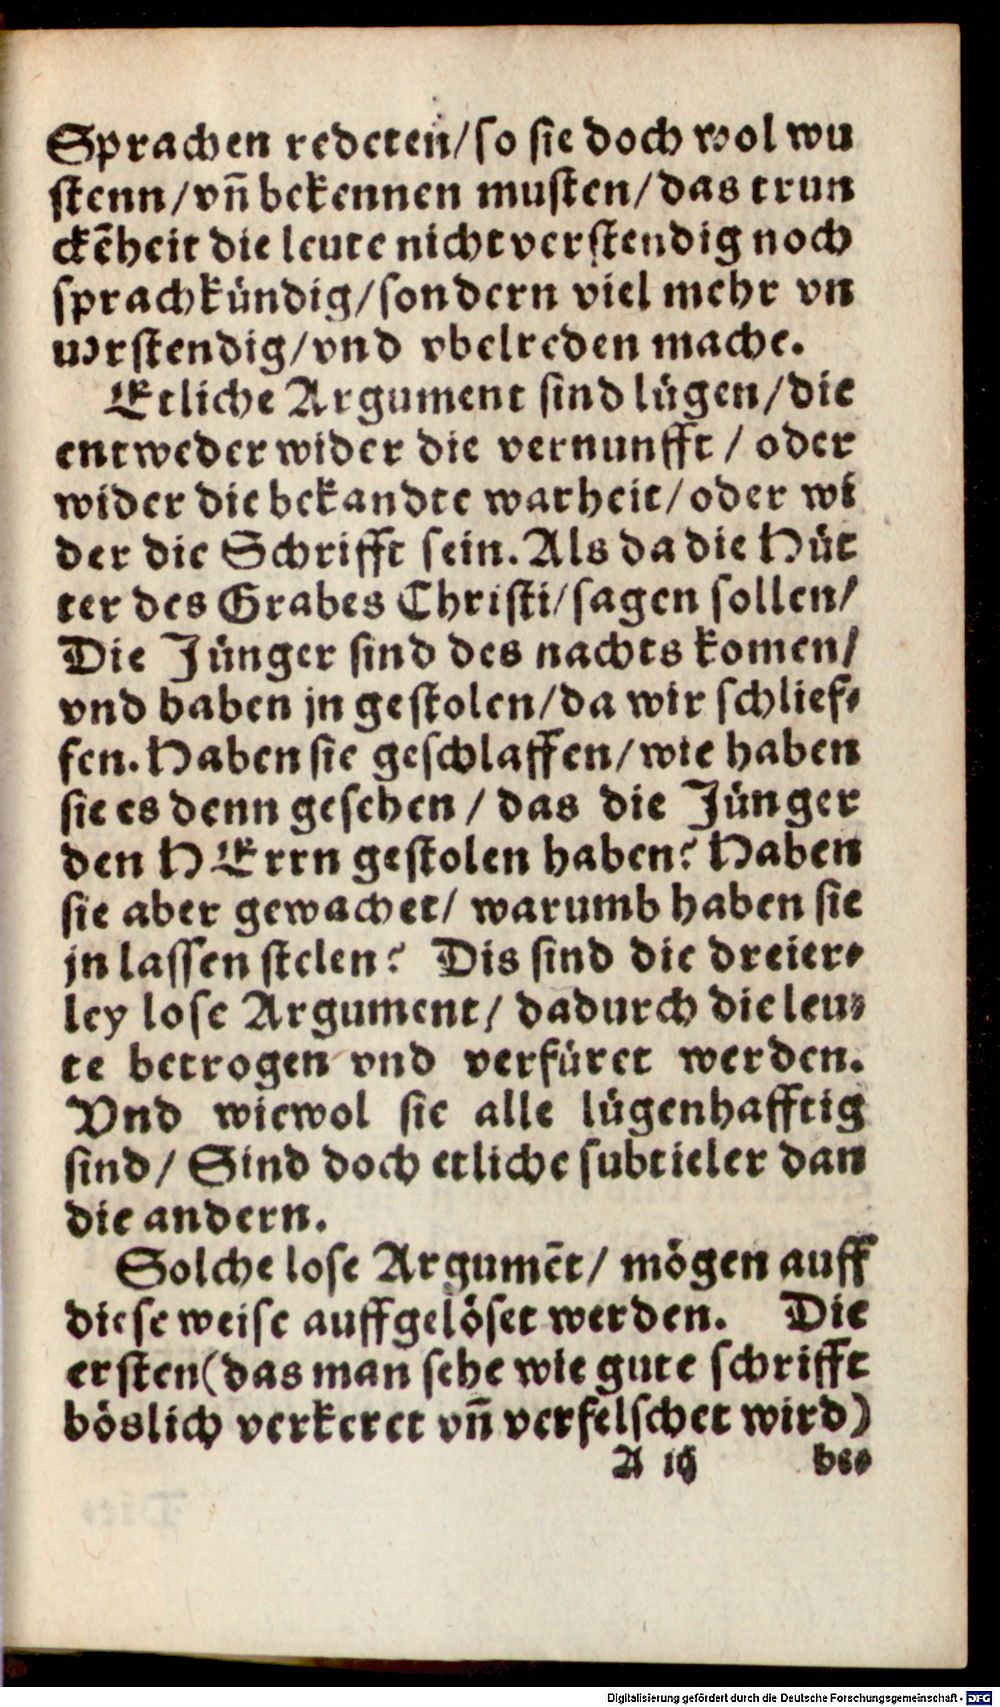 Sprachen redeten/so sie doch wol wu
stenn/vn̄ bekennen musten/das trun
ckēheit die leute nicht verstendig noch
sprachkündig/sondern viel mehr vn
uorstendig/vnd vbelreden mache.
Etliche Argument sind lügen/die
entweder wider die vernunfft / oder
wider die bekandte warheit/oder wi
der die Schrifft sein. Als da die Hüt
ter des Grabes Christi/sagen sollen/
Die Jünger sind des nachts komen/
vnd haben jn gestolen/da wir schlief⸗
fen. Haben sie geschlaffen/wie haben
sie es denn gesehen / das die Jünger
den HErrn gestolen haben? Haben
sie aber gewachet/ warumb haben sie
jn lassen stelen? Dis sind die dreier⸗
ley lose Argument/ dadurch die leu⸗
te betrogen vnd verfüret werden.
Vnd wiewol sie alle lügenhafftig
sind/ Sind doch etliche subtieler dan
die andern.
Solche lose Argumēt/ mögen auff
diese weise auffgelöset werden. Die
ersten(das man sehe wie gute schrifft
böslich verkeret vn̄ verfelschet wird)
A iij be⸗
Digitalisierung gefördert durch die Deutsche Forschungsgemeinschaft - DFG